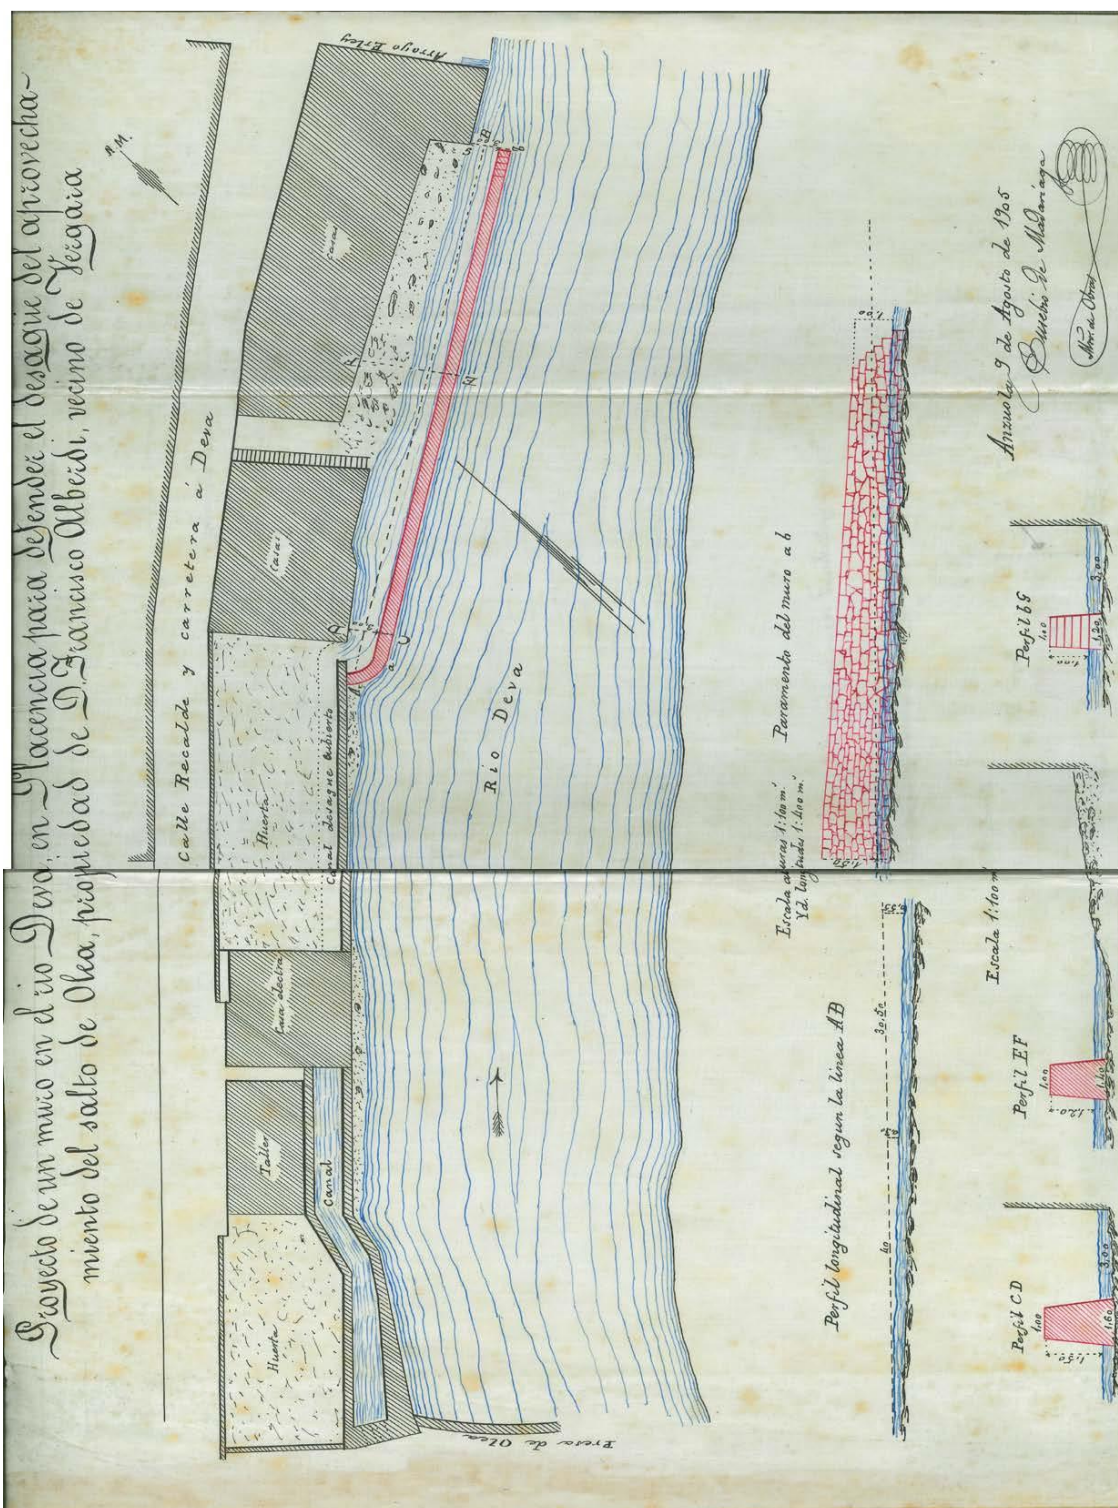 Proyecto de un muro en el rio Deva, en Placencia para defender el desagüe del aprovecha-
miento del salto de Olea, propiedad de D. Francisco Alberdi, vecino de Vergara
N.M.
Arroyo Erley
Calle Recalde y carretera á Deva
Huerta
Taller
Casa electra
Huerta
Casas
Casas
Canal
Canal desague cubierto
Presa de Olea
Rio Deva
A
a
C
D
B
b
Escala alturas 1:100 m.
Yd. longitudes 1:400 m.
Paramento del muro a b
1,50
1,00
Perfil longitudinal segun la línea AB
40
30,50
Escala 1:100 m
Perfil CD
1,00
1,50
1,60
3,00
Perfil EF
1,00
1,20
1,40
Perfil b G
1,00
1,00
1,20
3,00
Anzuola 9 de Agosto de 1905
Eusebio de Madariaga